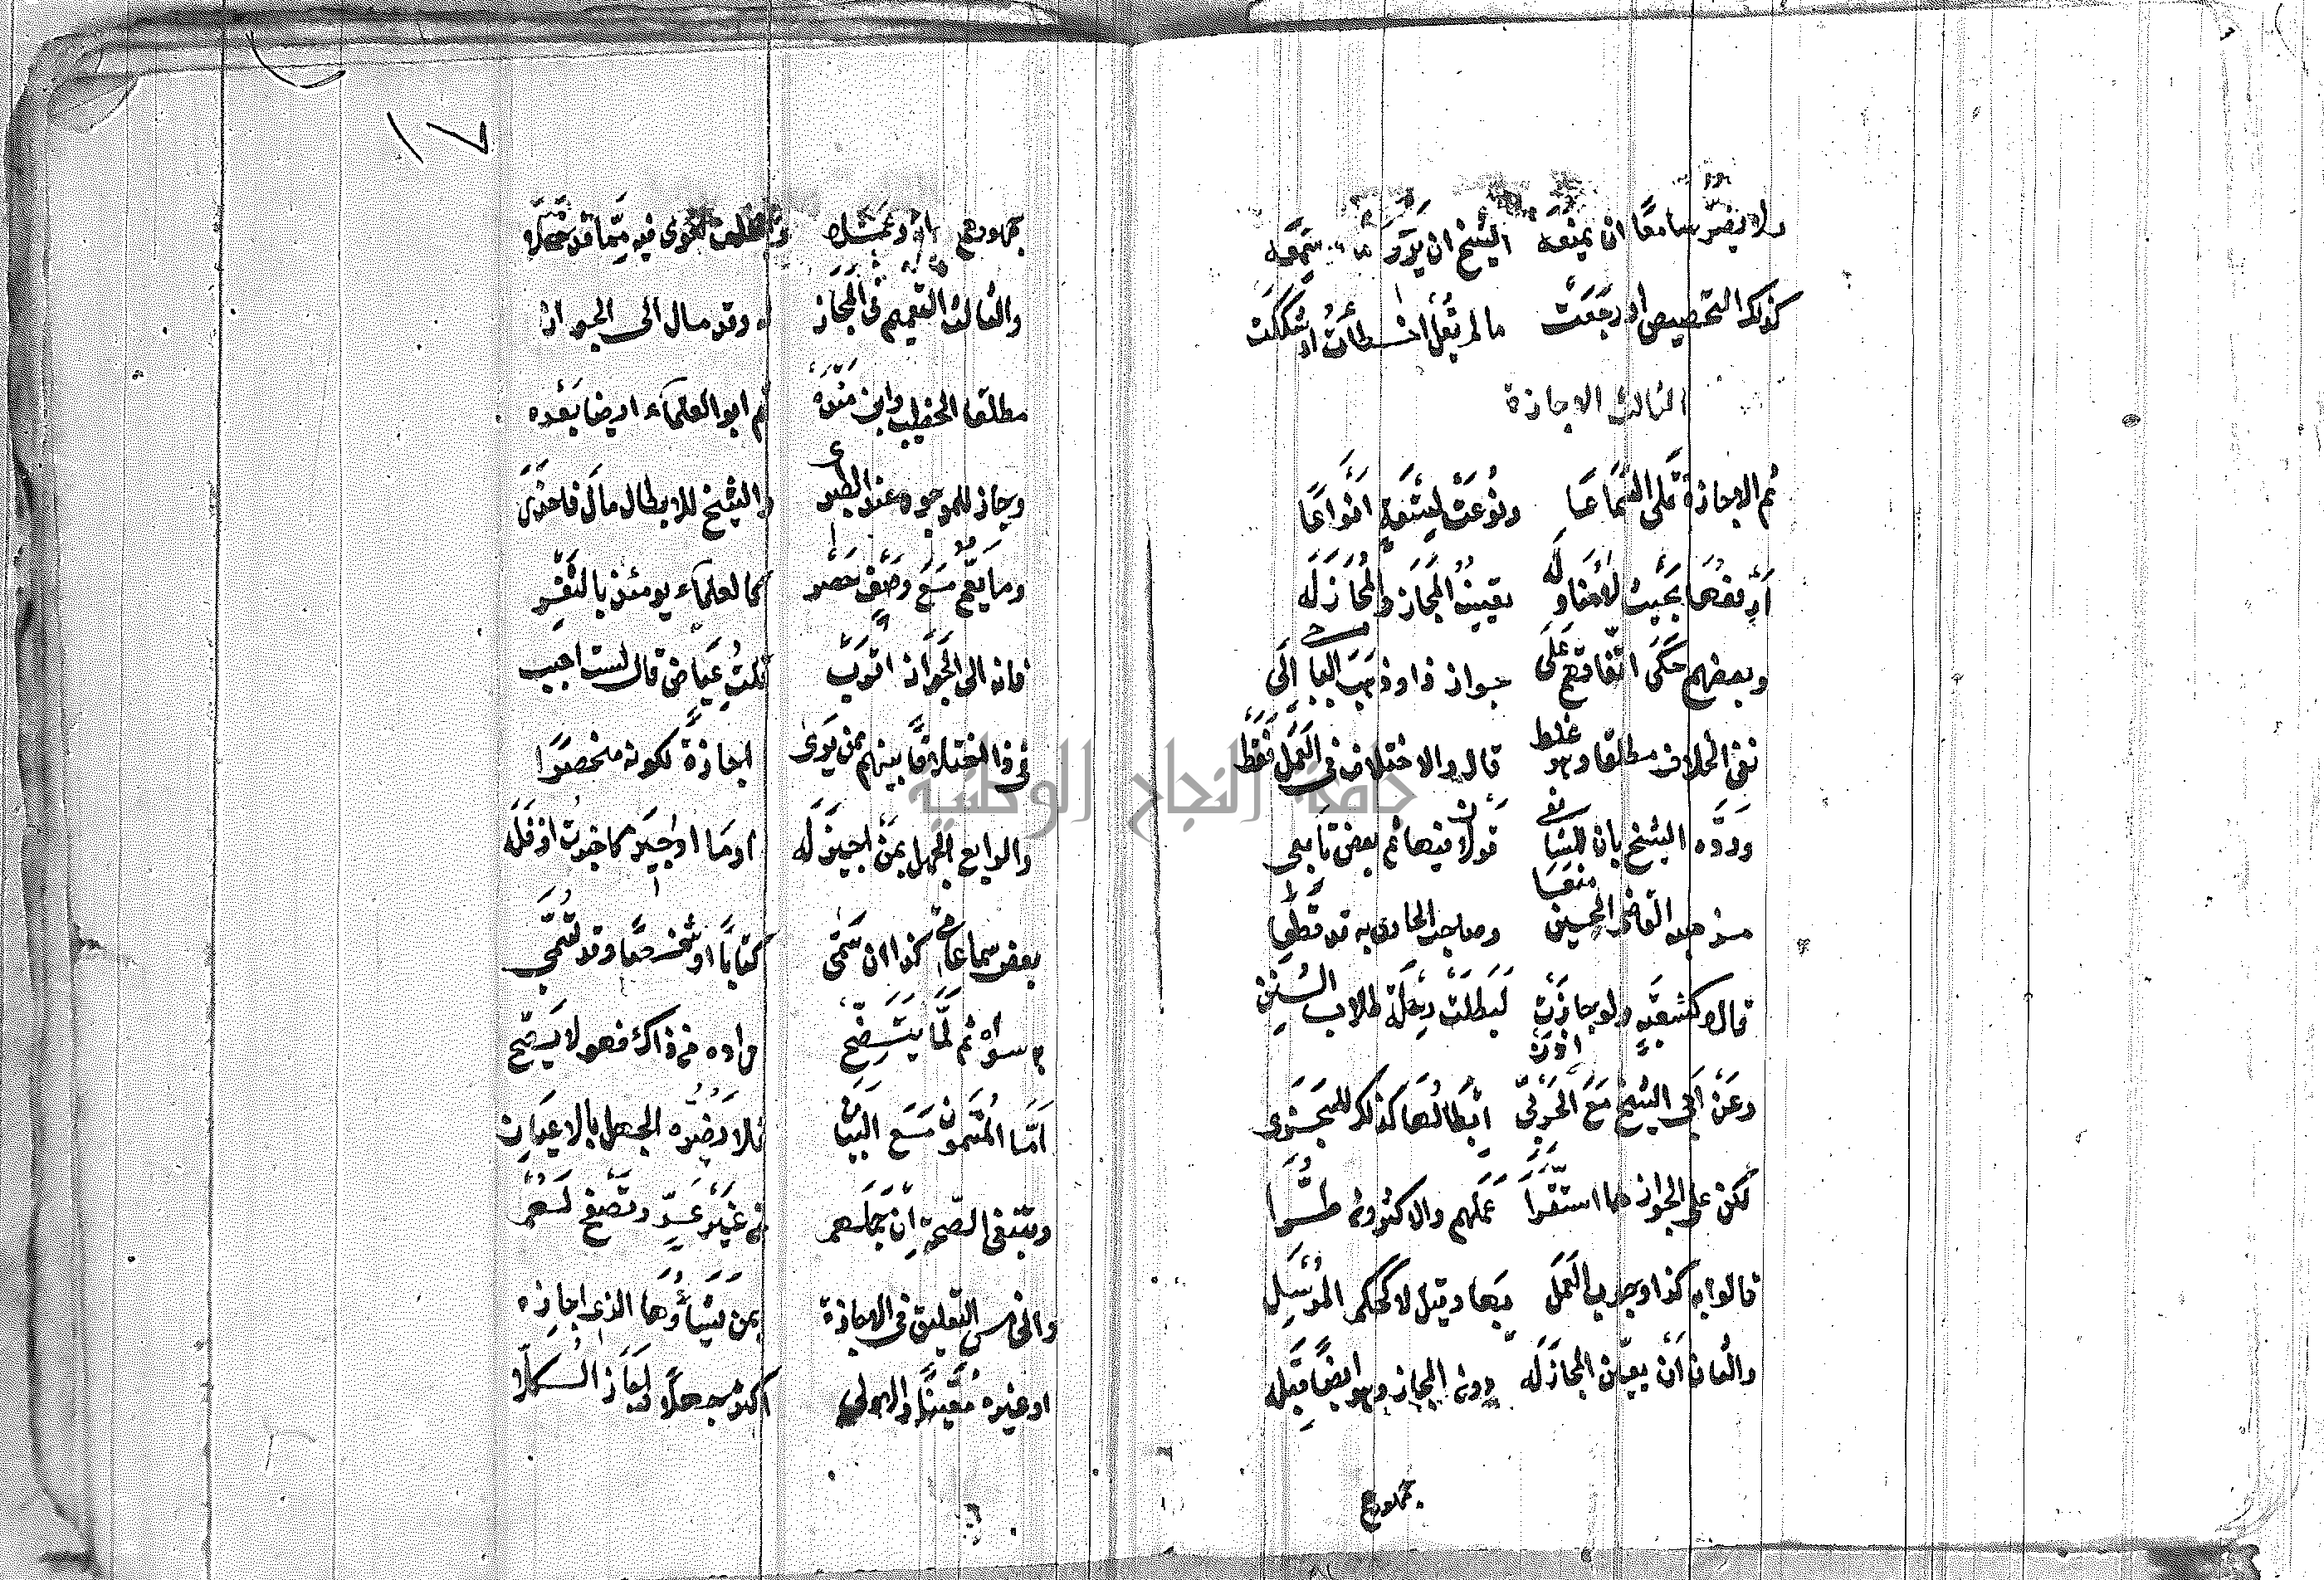 ولا يضر سامعا ان يمنعه الشيخ ان يروى سمعه
كذلك التخصيص او رجعت مالم يقل اخطأت او شككت
الثالث الاجازة
ثم الاجازة تلى السماعا ونوعت لتسعة انواعا
ارفعها بحيث لا مناوله تعيينه المجاز والمجازله
وبعضهم حكى اتفاقهم على جواز ذا وذهب الباجى الى
نفى الخلاف مطلقا وهو غلط قال والاختلاف فى العمل فقط
ورده الشيخ بان للشافعى قولان فيها ثم بعض تابعى
مذهبه القاضى الحسين منعا وصاحب الحاوى به قد قطعا
قالا كشعبة ولو جازت اذن لبطلت رحلة طلاب السنن
وعن ابى الشيخ مع الحربى ابطالها كذلك للسجزى
لكن على الجواز هما استقرا عملهم والاكثرون طرا
قالوا به كذا وجوب العمل بها وقيل لا كحكم المرسل
والثان ان يعين المجازله دون المجاز وهو ايضا قبله
جمهورهم
١٧
جمهورهم
والثالث التعميم فى المجاز له وقد مال الى الجواز
مطلقا الخطيب وابن منده ثم ابو العلاء ايضا بعده
وجاز للموجود عند الطبرى والشيخ للابطال مال فاحذر
وما يعم مع وصف حصر كالعلماء يومئذ بالثغر
فانه الى الجواز اقرب قلت عياض قال لست احسب
فى ذا اختلافا بينهم ممن يرى اجازة لكونه منحصرا
والرابع الجهل بمن اجيزله او ما اجيز كاجزت ازفله
بعض سماعاتى كذا ان سمى كتابا او شخصا وقد تسمى
به سواه ثم لما يتضح مراده من ذاك فهو لا يصح
اما المسمون مع البيان فلا يضره الجهل بالاعيان
وينبغى الصحة ان جملهم من غير عد وتصفح لهم
والخامس التعليق فى الاجازه بمن يشاؤها الذى اجازه
او غيره معينا والاولى اكثر جهلا واجاز الكلا